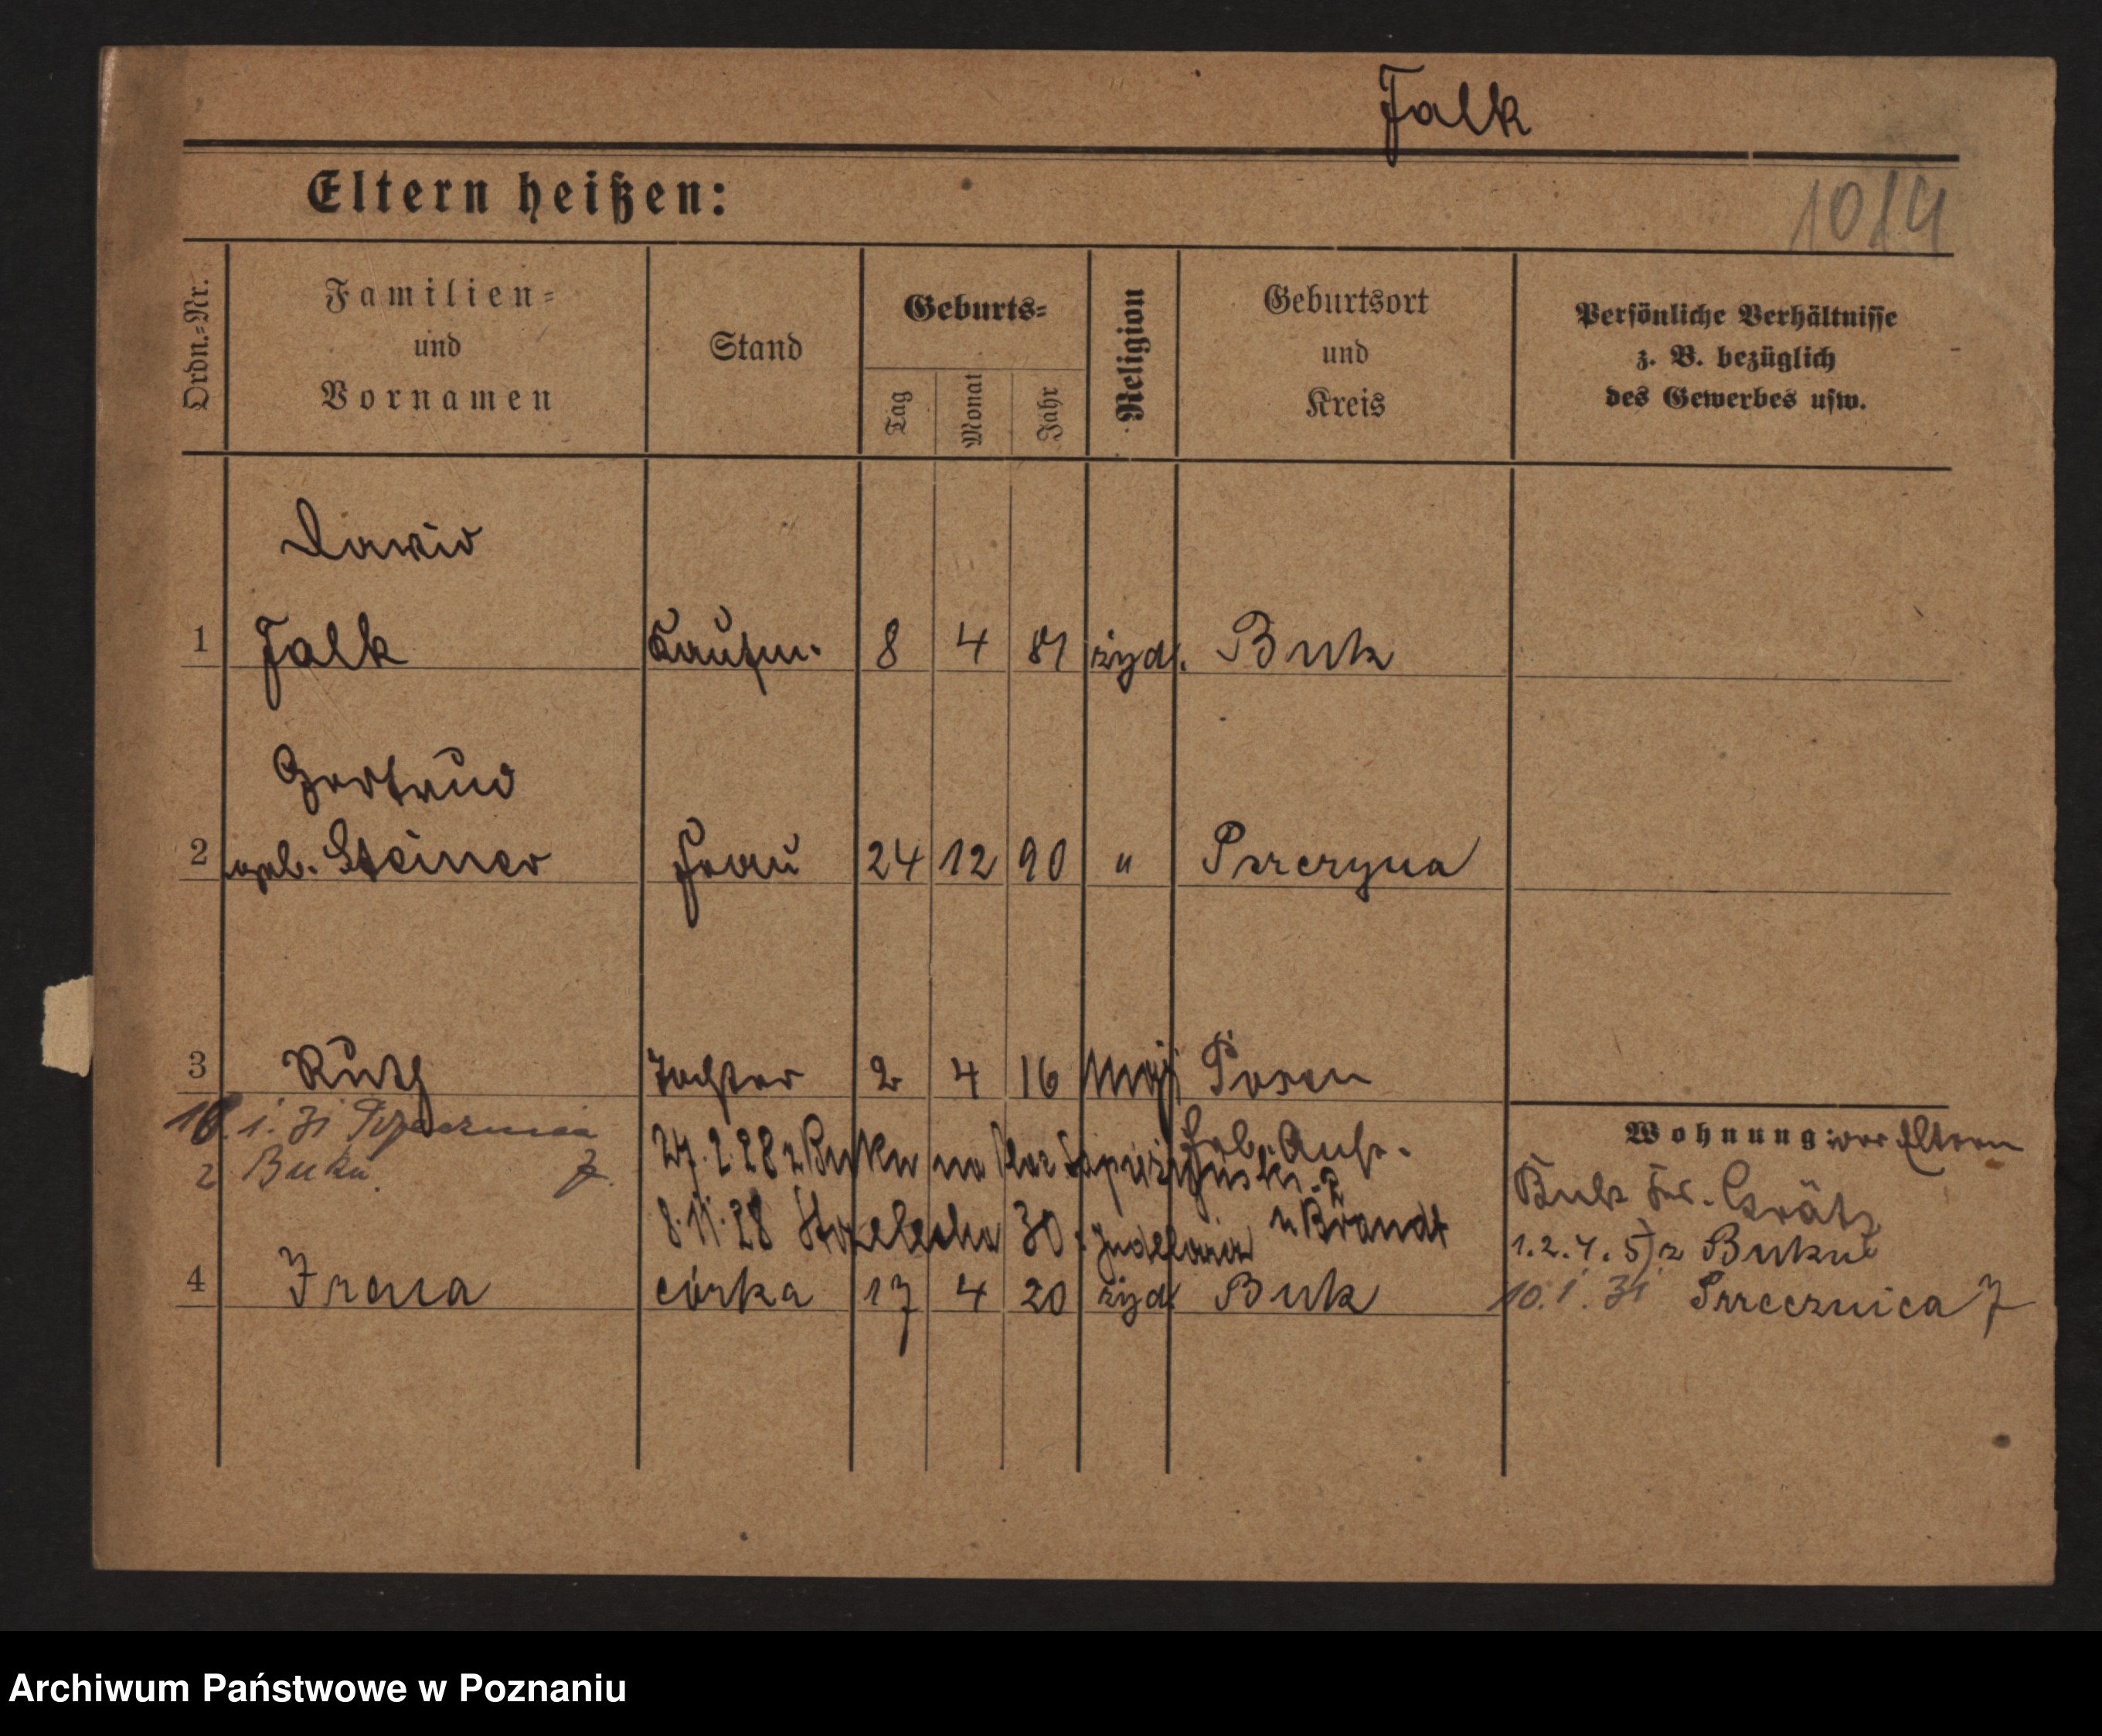 Falk
Eltern heißen:
1014
Ordn.=Nr.
Familien= und Vornamen
Stand
Geburts=
Tag
Monat
Jahr
Religion
Geburtsort und Kreis
Persönliche Verhältnisse z. B. bezüglich des Gewerbes usw.
Dawid
1 Falk Kaufm. 8 4 81 żyd. Buk
Gertrud
2 geb. Steiner Frau 24 12 90 " Pszczyna
3 Ruth Tochter 2 4 16 mojż Posen
10. 1. 31 Pszczelnica
z Buku. 7.
27.2.28 z Buku na Plac Sapieżyński
8.11.28 Strzelecka 30
u Brandt
Wohnung: der Eltern
Buk Kr. Grätz
1.2.4.5) z Buku
4 Irena córka 17 4 20 żyd. Buk
10. 1. 31 7
Archiwum Państwowe w Poznaniu